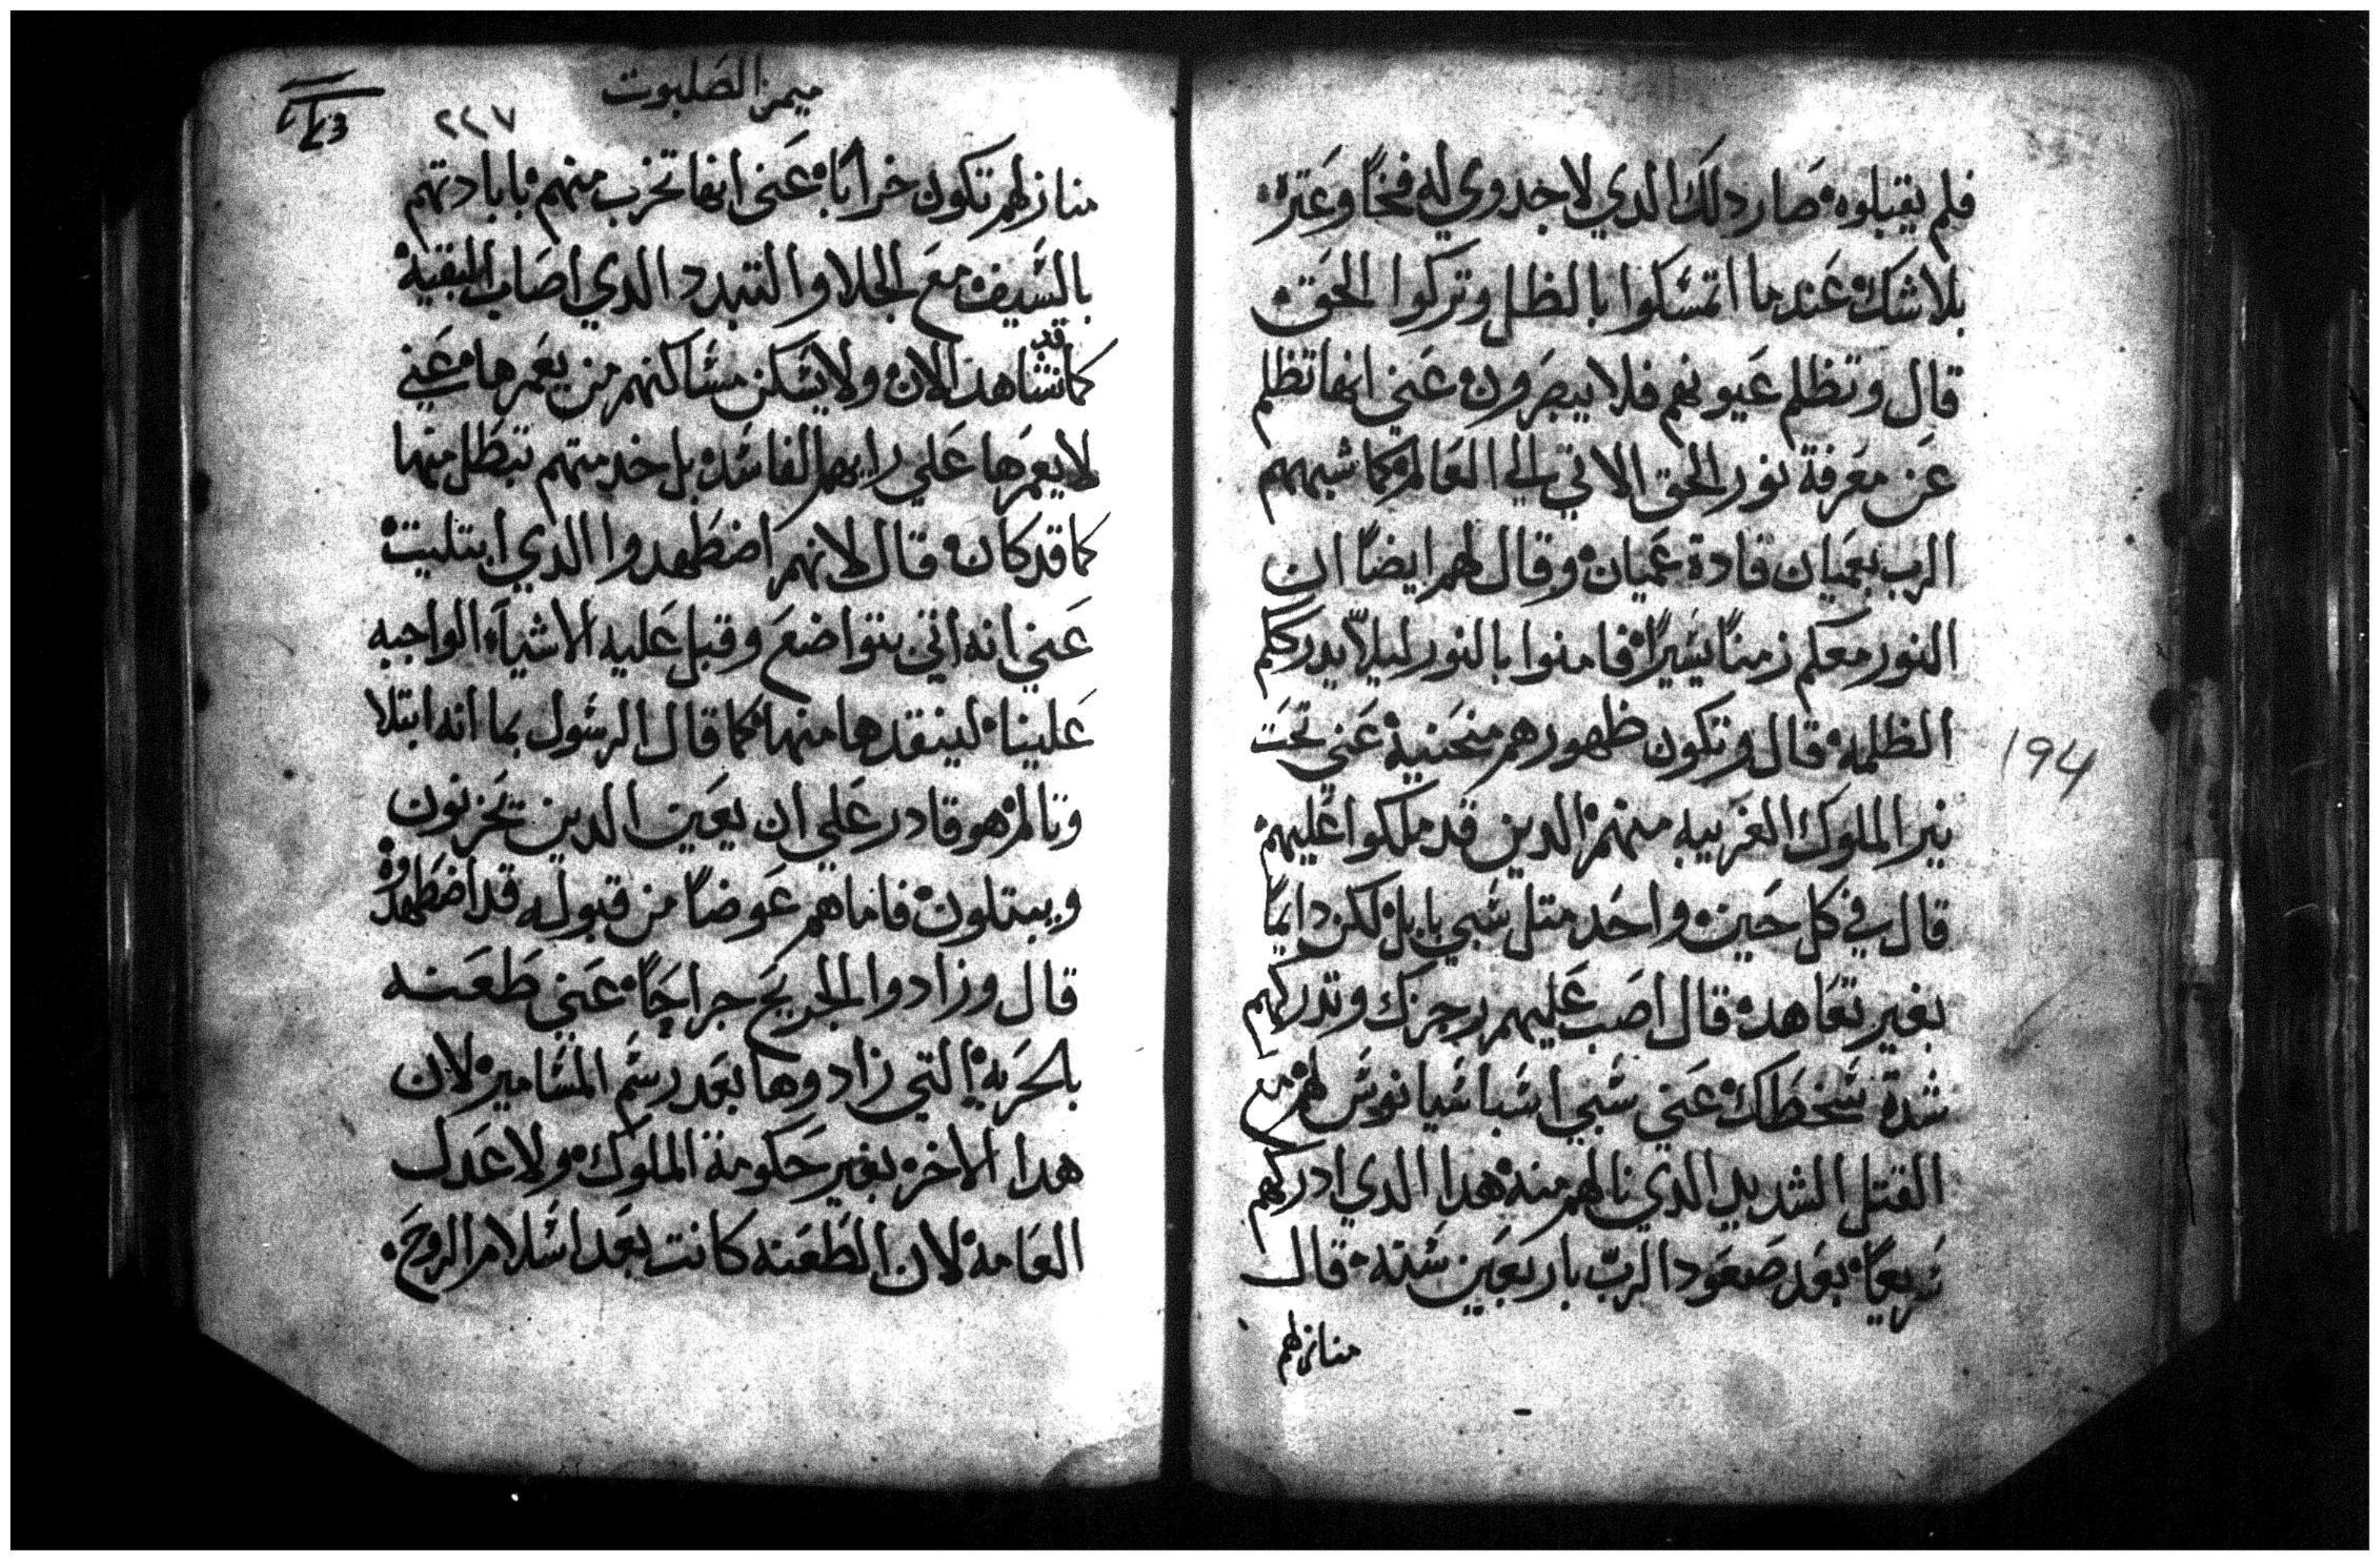 فلم يقبلوه صار دلك الدي لاجدوي له فخًا وعترة
بلا شك عندما اتمسكوا بالظل وتركوا الحق
قال وتظلم عيونهم فلا يبصرون عني انها تظلم
عن معرفة نور الحق الاتي الي العالم كما شبههم
الرب بعميان قادة عميان وقال لهم ايضًا ان
النور معكم زمنًا يسيرًا فامنوا بالنور ليلاّ يدرككم
الظلمه قال وتكون ظهورهم منحنية عني تحت
نير الملوك الغريبه منهم الدين قد ملكوا عليهم
قال في كل حين واحد متل سبي بابل لكن دايمًا
بغير تعاهد قال اصب عليهم رجزك وتدركهم
شدة سخطك عني سبي اسباسيانوس لهم مع
القتل الشديد الدي نالهم منه هدا الدي ادركهم
سريعًا بعد صعود الربّ باربعين سنه قال
منازلهم
194
ميمر الصلبوت
٢٢٧
منازلهم تكون خرابًا عني انها تخرب منهم بابادتهم
بالسيف مع الجلا والتبدد الدي اصاب البقيه
كما قد نشاهد الان ولا يسكن مساكنهم من يعمرها عني
لا يعمرها علي رايهم الفاسد بل خدمتهم تبطل منها
كما قد كان قال لانهم اضطهدوا الدي ابتليت
عني انه اتي بتواضع وقبل عليه الاشيآء الواجبه
علينا لينقدها منها كما قال الرسول بما انه ابتلا
وتالم هو قادر علي ان يعين الدين يحزنون
ويبتلون فاما هم عوضًا من قبوله قد اضطهدوه
قال وزادوا الجريح جراحًا عني طعنه
بالحربه التي زادوها بعد رسم المسامير لان
هدا الاخر بغير حكومة الملوك ولا عدل
العامه لان الطعنه كانت بعد اسلام الروح